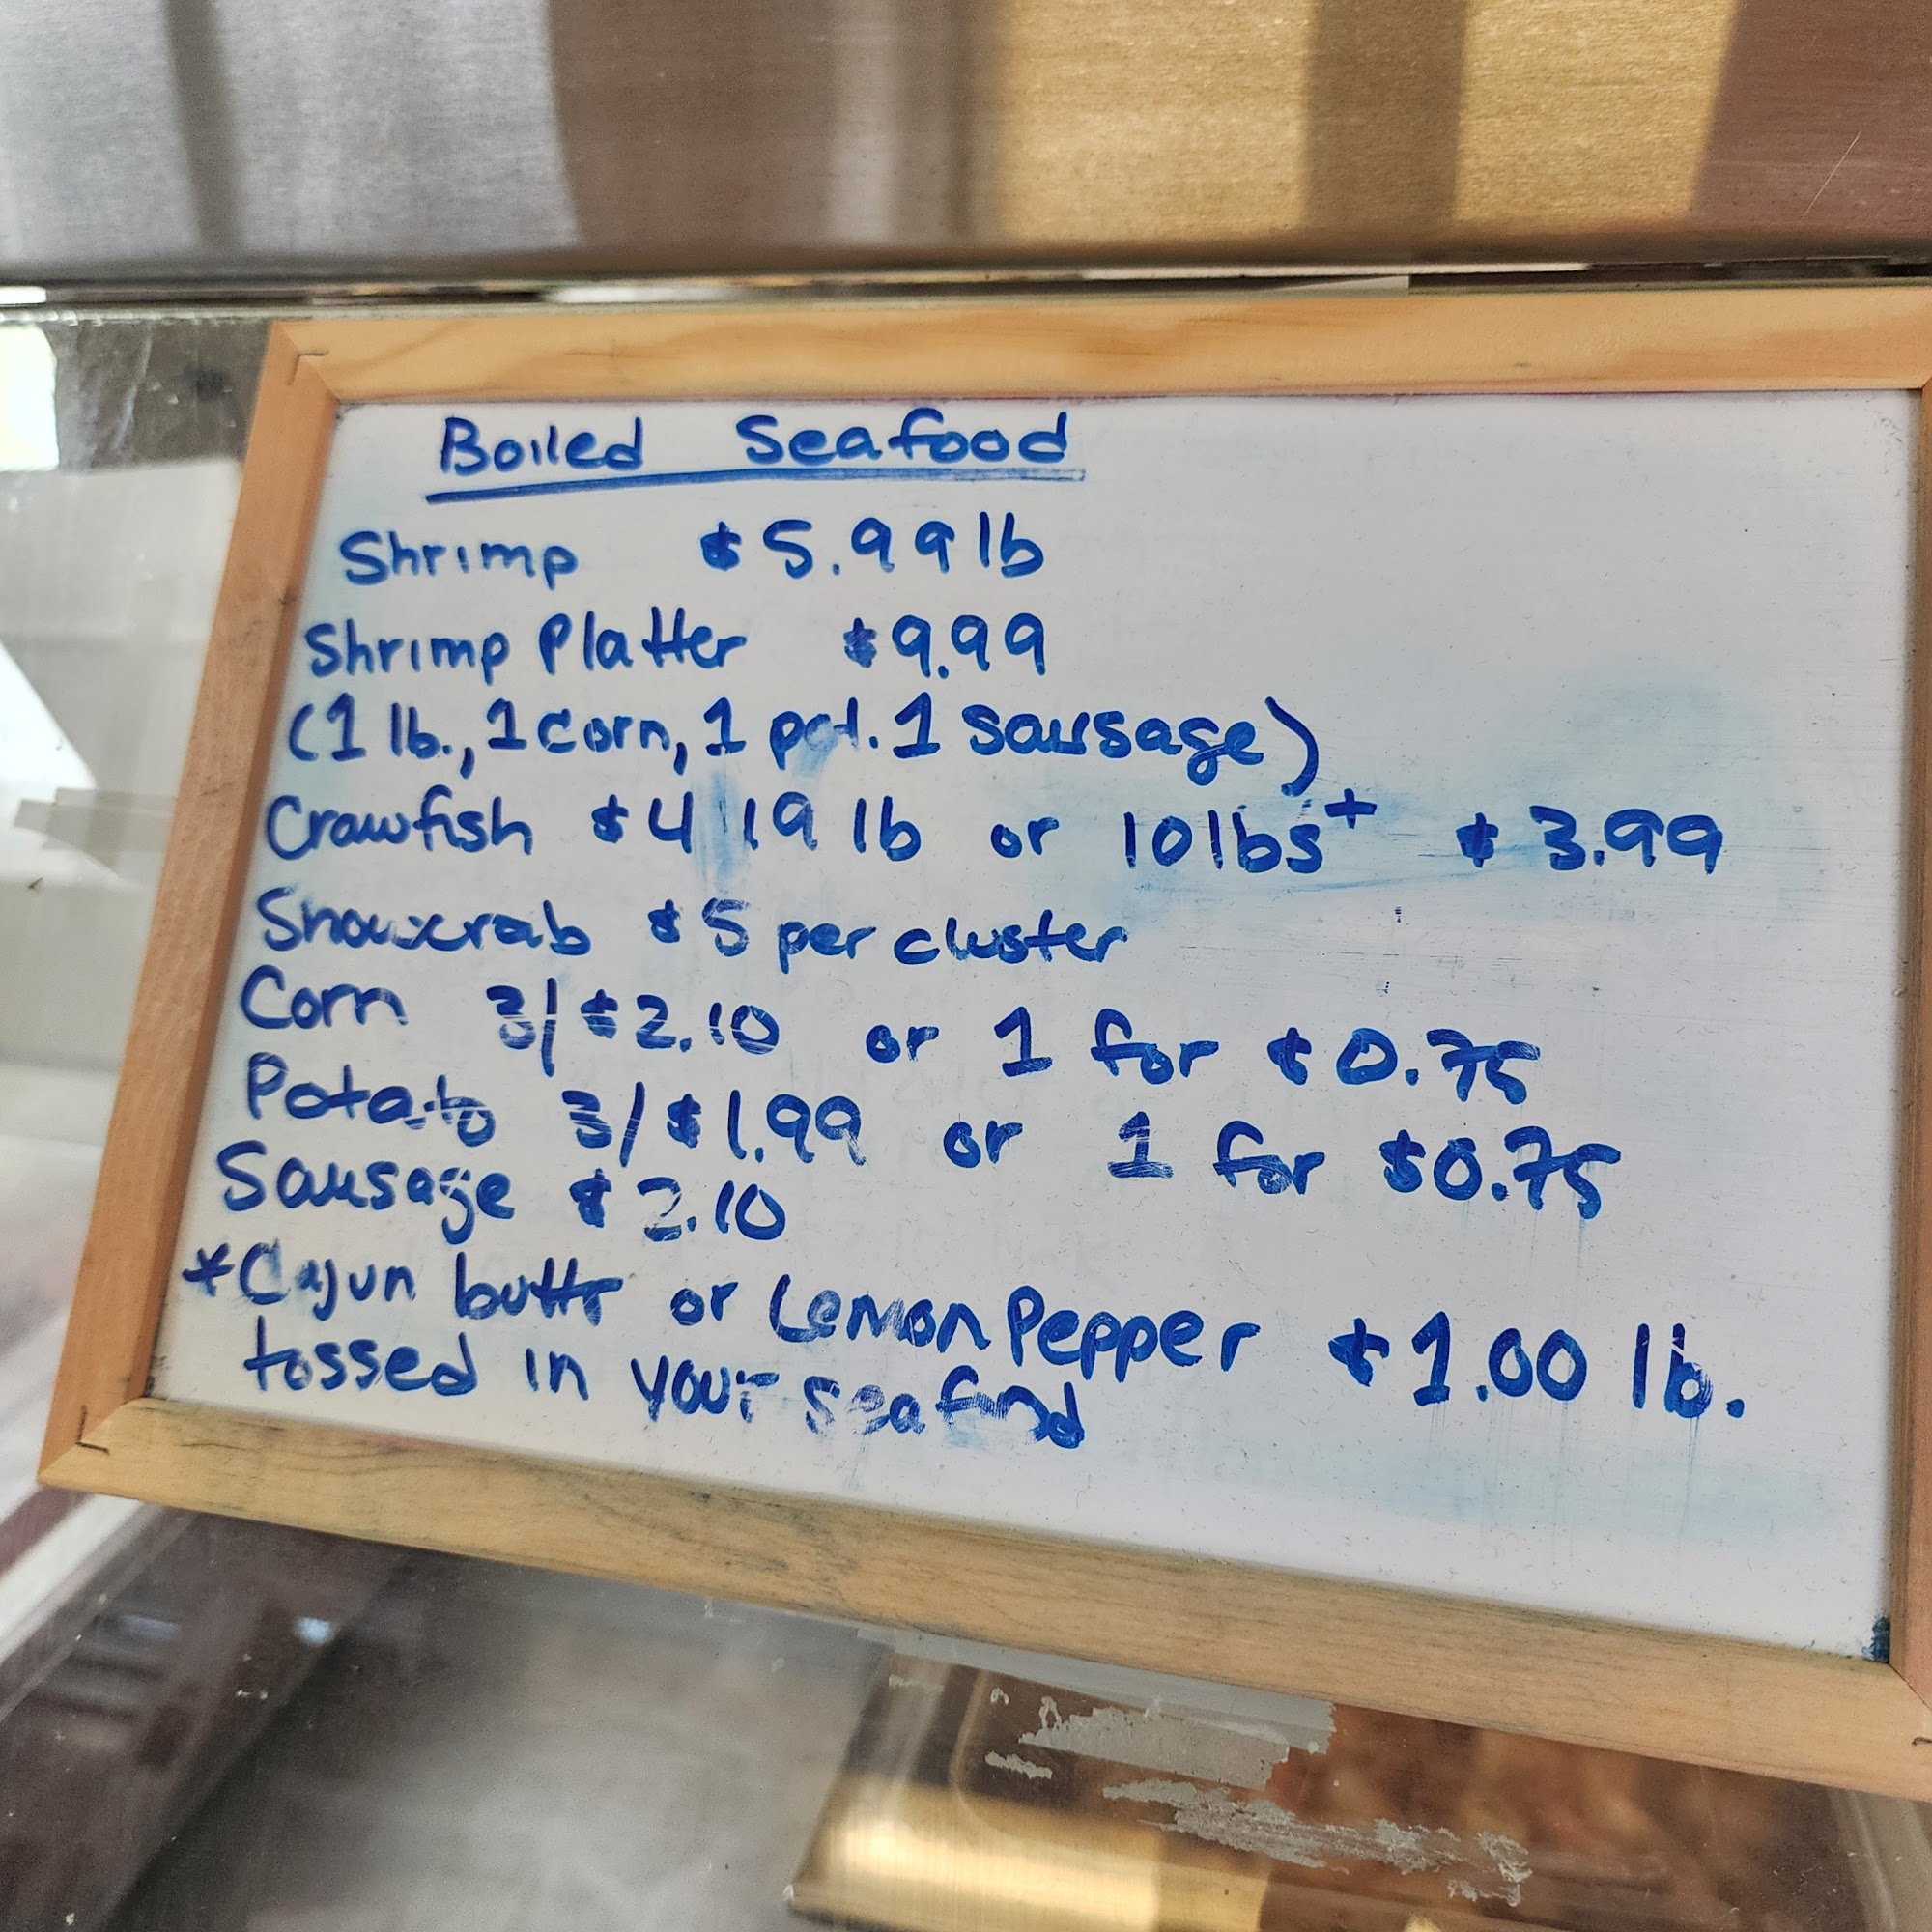 Boiled Seafood
Shrimp $5.99 lb
Shrimp Platter $9.99
(1 lb., 1 corn, 1 pot. 1 Sausage)
Crawfish $4 19 lb or 10 lbs+ $3.99
Snowcrab $5 per cluster
Corn 3/$2.10 or 1 for $0.75
Potato 3/$1.99 or 1 for $0.75
Sausage $2.10
*Cajun buttr or Lemon Pepper $1.00 lb.
tossed in your seafood